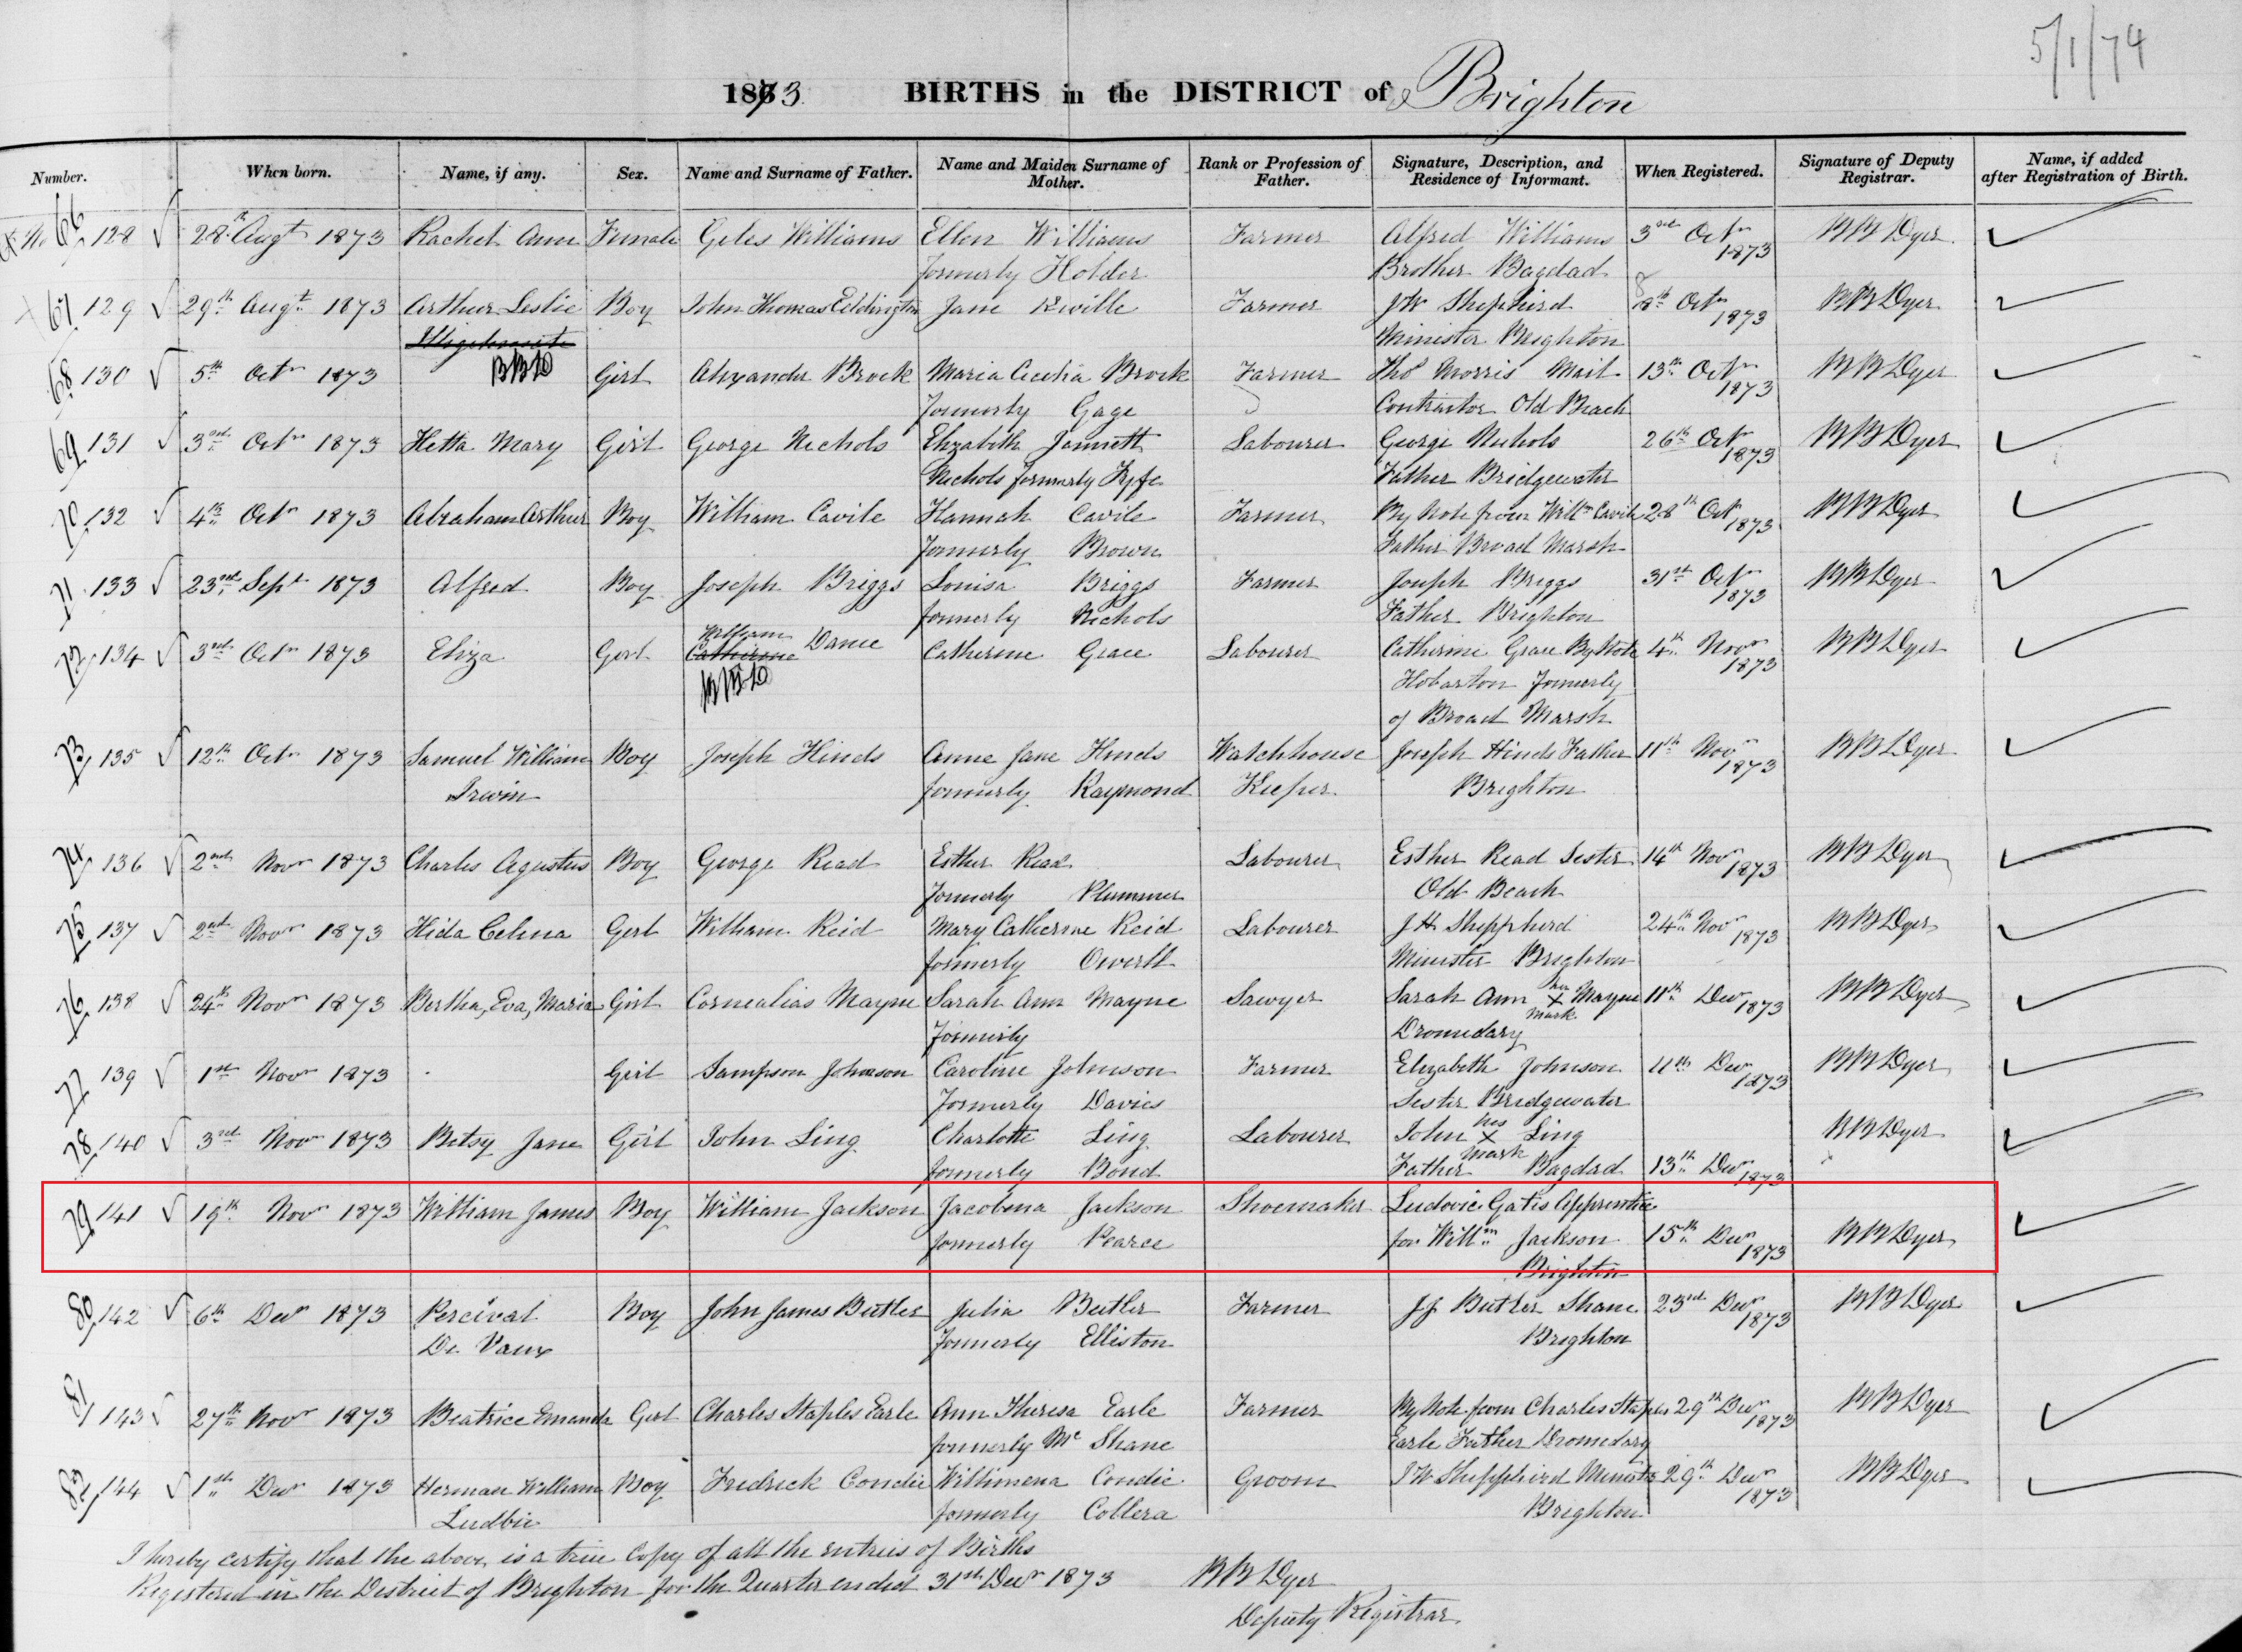 5/1/74
1873 BIRTHS in the DISTRICT of Brighton
Number. When born. Name, if any. Sex. Name and Surname of Father. Name and Maiden Surname of Mother. Rank or Profession of Father. Signature, Description, and Residence of Informant. When Registered. Signature of Deputy Registrar. Name, if added after Registration of Birth.
66 128 28th Augt 1873 Rachel Ann Female Giles Williams Ellen Williams Farmer Alfred Williams 3rd Octr 1873 BB Dyer
formerly Holder Brother Bagdad
67 129 29th Augt 1873 Arthur Leslie Boy John Thomas Eddington Jane Reville Farmer JW Shepherd 8th Octr 1873 BB Dyer
Illigitimate Minister Brighton
BBD
68 130 5th Octr 1873 Girl Alexander Brock Maria Cecilia Brock Farmer Thos Morris Mail 13th Octr 1873 BB Dyer
formerly Gage Contractor Old Beach
69 131 3rd Octr 1873 Hetta Mary Girl George Nichols Elizabeth Jannett Labourer George Nichols 26th Octr 1873 BB Dyer
Nichols formerly Fyfe Father Bridgewater
70 132 4th Octr 1873 Abraham Arthur Boy William Cavile Hannah Cavile Farmer By Note from Willm Cavile 28th Oct 1873 BB Dyer
formerly Brown Father Broad Marsh
71 133 23rd Sept 1873 Alfred Boy Joseph Briggs Louisa Briggs Farmer Joseph Briggs 31st Octr 1873 BB Dyer
formerly Nichols Father Brighton
William
72 134 3rd Octr 1873 Eliza Girl Catherine Dance Catherine Grace Labourer Catherine Grace By Note 4th Novr 1873 BB Dyer
BBD Hobarton formerly
of Broad Marsh
73 135 12th Octr 1873 Samuel William Boy Joseph Hinds Anne Jane Hinds Watchhouse Joseph Hinds Father 11th Novr 1873 BB Dyer
Irwin formerly Raymond Keeper Brighton
74 136 2nd Novr 1873 Charles Agustus Boy George Read Esther Read Labourer Esther Read Sister 14th Novr 1873 BB Dyer
formerly Plummer Old Beach
75 137 2nd Novr 1873 Hida Celina Girl William Reid Mary Catherine Reid Labourer J H Shepherd 24th Novr 1873 BB Dyer
formerly Minister Brighton
76 138 24th Novr 1873 Bertha, Eva, Maria Girl Cornealias Mayne Sarah Ann Mayne Sawyer Sarah Ann her X mark Mayne 11th Decr 1873 BB Dyer
Formerly Dromedary
77 139 1st Novr 1873 Girl Sampson Johnson Caroline Johnson Farmer Elizabeth Johnson 11th Decr 1873 BB Dyer
Formerly Davies Sister Bridgewater
78 140 3rd Novr 1873 Betsy Jane Girl John Ling Charlotte Ling Labourer John his X mark Ling BB Dyer
formerly Bond Father Bagdad 13th Decr 1873
79 141 19th Novr 1873 William James Boy William Jackson Jacobina Jackson Shoemaker Ludovic Gatis Apprentice
formerly Pearce for Willm Jackson 15th Decr 1873 BB Dyer
Brighton
80 142 6th Decr 1873 Percival Boy John James Butler Julia Butler Farmer JJ Butler Shane 23rd Decr 1873 BB Dyer
De Vaux formerly Elliston Brighton
81 143 27th Novr 1873 Beatrice Emanda Girl Charles Staples Earle Ann Theresa Earle Farmer By Note from Charles Staples 29th Decr 1873 BB Dyer
formerly Mc Shane Earle Father Dromedary
82 144 1st Decr 1873 Herman William Boy Fredrick Condie Willimena Condie Groom J W Shepherd Minister 29th Decr 1873 BB Dyer
Ludbie formerly Collera Brighton
I hereby certify that the above, is a true Copy of all the entries of Births
Registered in the District of Brighton for the Quarter ended 31st Decr 1873 BB Dyer
Deputy Registrar